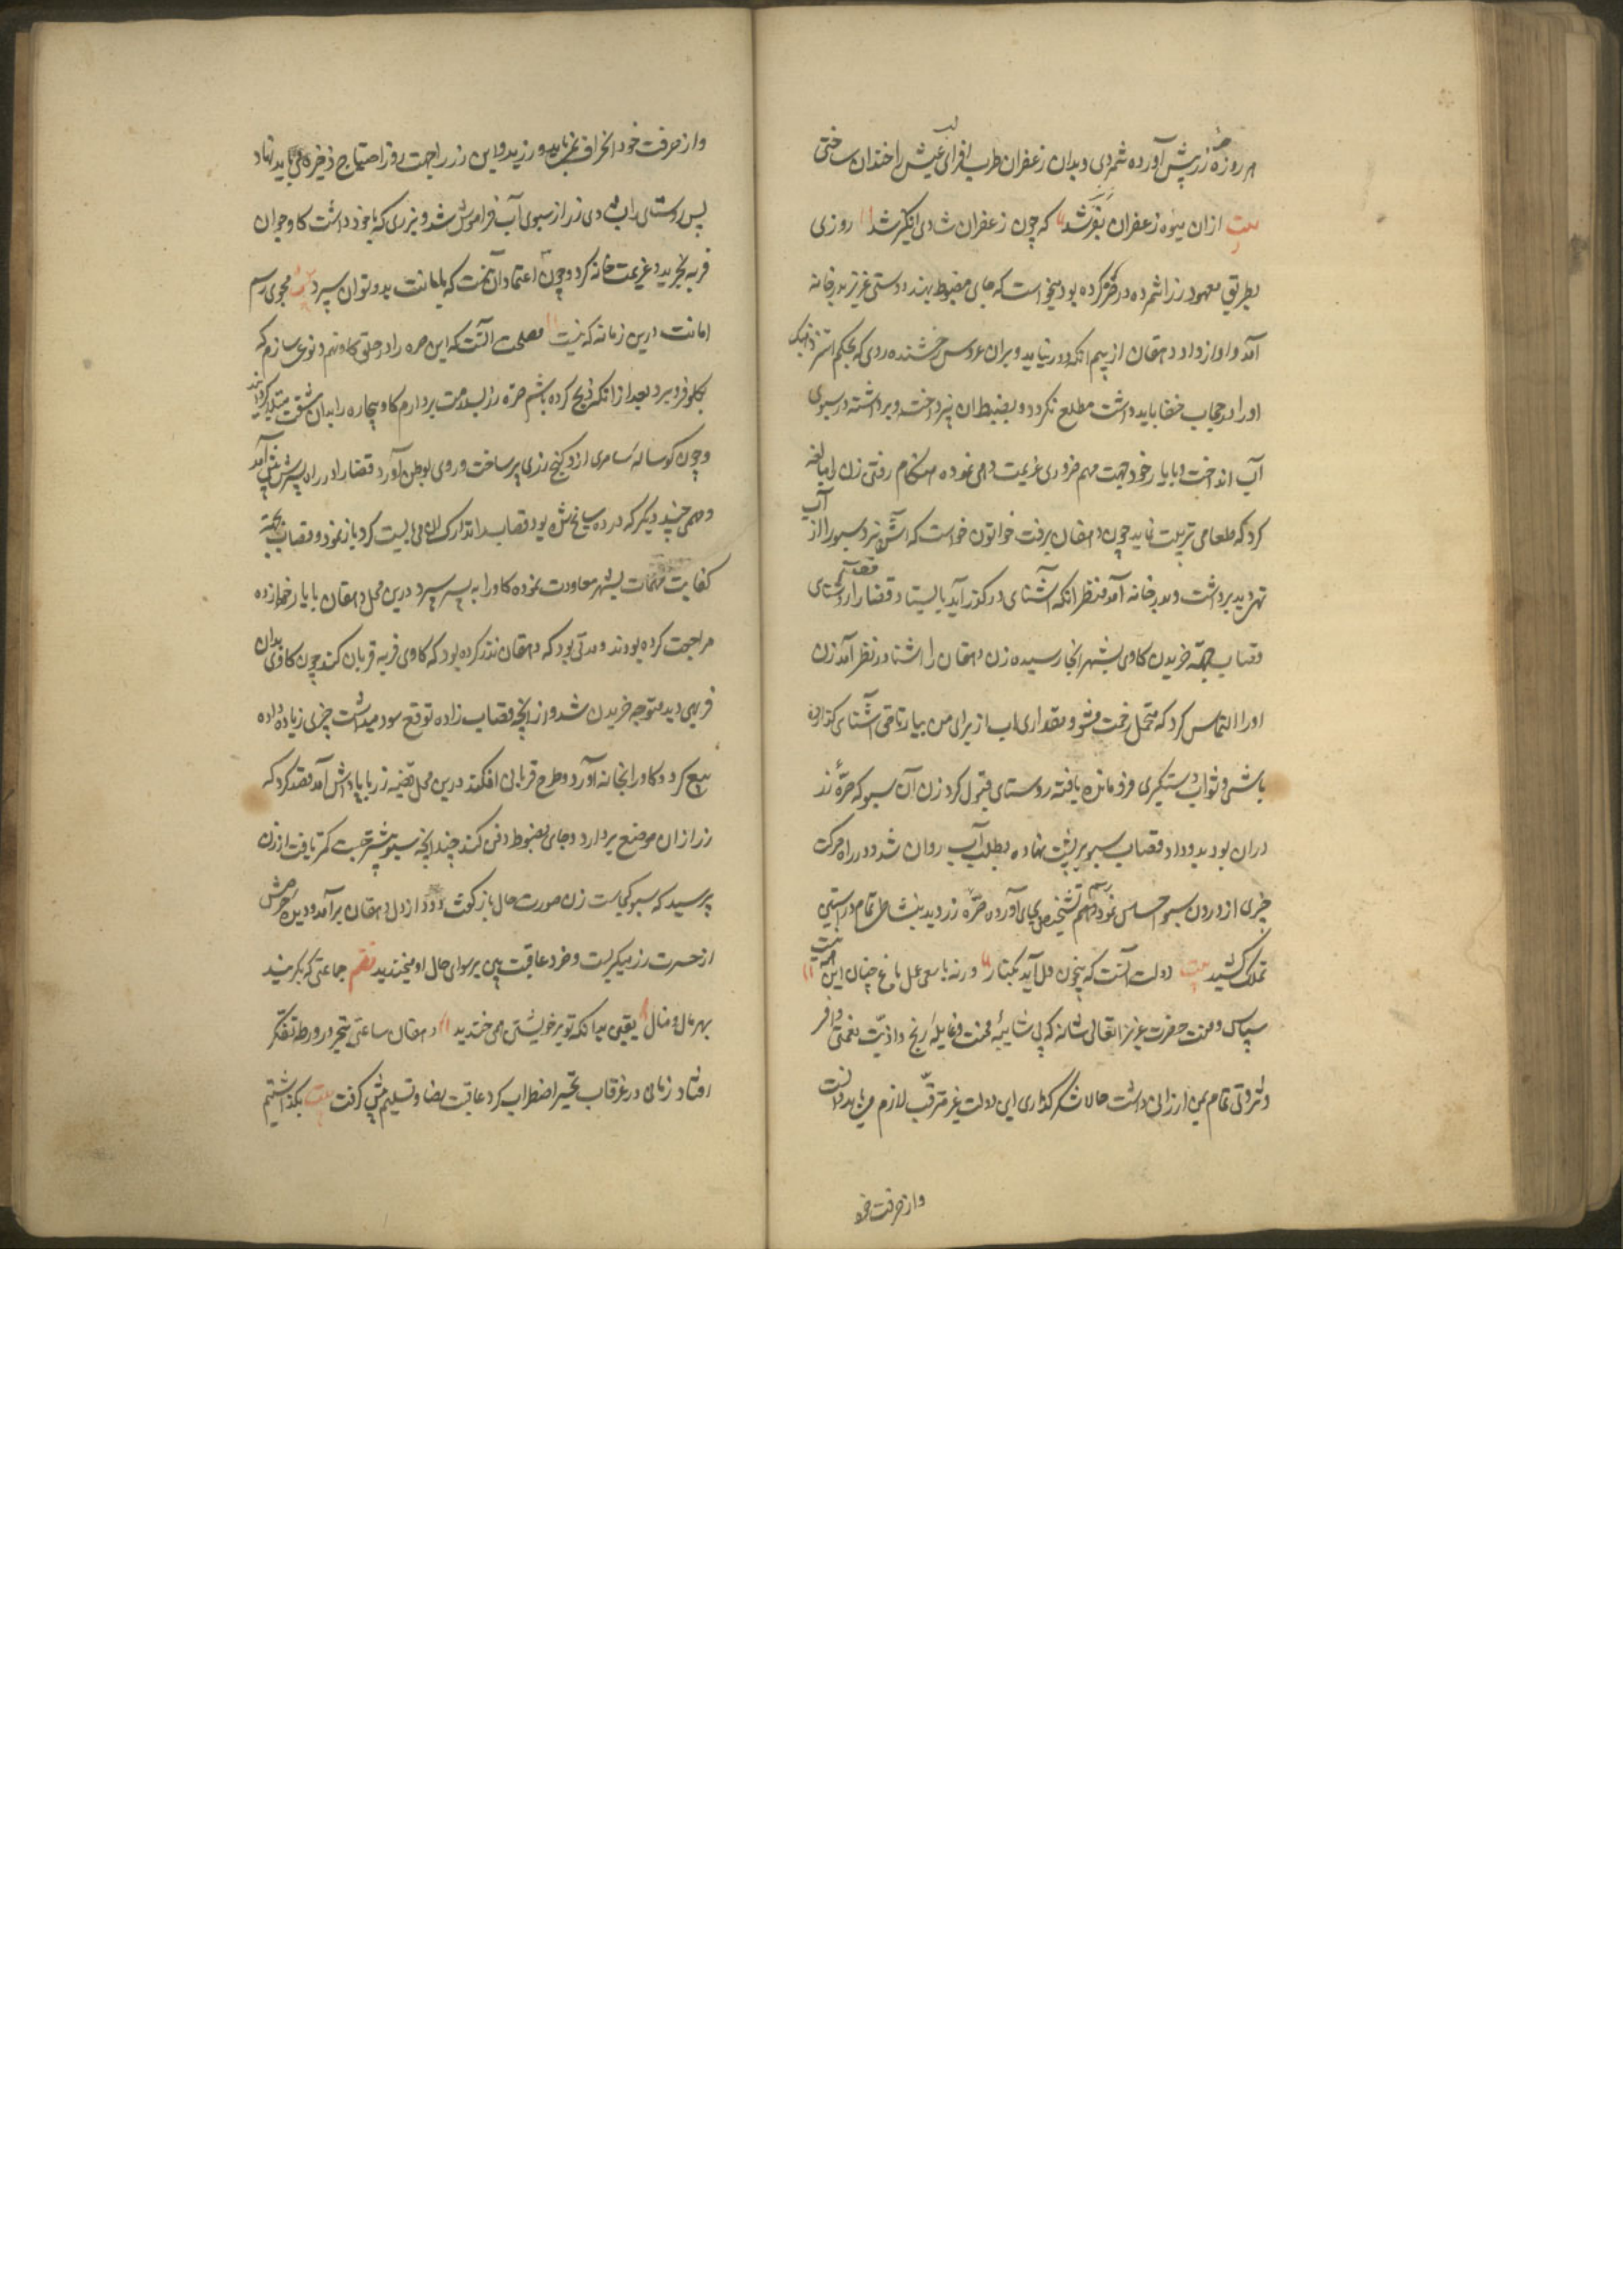 هر روز صره زر پیش آورده شمردی و بدان زعفران طرب افزای لب عیش را خندان ساختی
بیت ازان میوه زعفران بغر شد که چون زعفران شادی انگیز شد روزی
بطریق معهود زر را شمرده در صره کرده بود میخواست که جای مضبوط بنهد دوستی عزیز بدر خانه
آمد و آواز داد دهقان از بیم آنکه او در نیاید و بران عروس رخشنده روی که بحکم استر ذهبک
او را در حجاب خفا باید داشت مطلع نگردد و بضبط آن نپرداخت و برداشته در سبوی
آب انداخت و با یار خود جهت مهم ضروری عزیمت دهی نموده هنگام رفتن زن را مبالغه
کرد که طعامی ترتیب نماید چون دهقان برفت خواتون خواست که آش پزد سبو را از آب
تهی دید برداشت و بدر خانه آمد منتظر آنکه آشنای در گذر آید بایستاد قضا را روستای
قصاب جهة خریدن گاوی بشهر آنجا رسیده زن دهقان را آشنا در نظر آمد زن
او را التماس کرد که متحمل زحمت شو و مقداری آب از برای من بیار تا حق آشنای گذارده
باشی و ثواب دستگیری فروماندن یافته روستای قبول کرد زن آن سبو که صرهٔ زر
دران بود بدو داد قصاب سبو بر پشت نهاده بطلب آب روان شد و در راه حرکت
چیزی از درون سبو احساس نمود رسم تشخیص بجای آورده صره زر دید بنشاط تمام در آستین
تملک کشید بیت دولت آنست که بیخون دل آید بکنار ورنه با سعی عمل باغ جنان این همه نیست
سپاس و منت حضرت عزیز را تعالی شانه که بی شایبهٔ محنت و غایلهٔ رنج و اذیت نعمتی وافر
و ثروتی تمام بمن ارزانی داشت حالا شکر گذاری این دولت غیر مترقب لازم می باید دانست
واز حرفت خود
واز حرفت خود انحراف نمی باید ورزید و این زر را جهت روز احتیاج ذخیره می باید نهاد
پس روستای را بشادی زر از سبوی آب فراموش شد و بزری که با خود داشت گاو جوان
فربه بخرید و عزیمت خانه کرد و چون اعتماد آن نداشت که بامانت بدو توان سپرد مجوی رسم
امانت درین زمانه که نیست مصلحت آنست که این صره را در حلق گاو نهم و نوعی سازم که
بگلو فرو برد بعد از آنکه ذبح کرده باشم صره زر بسلامت بردارم گاو بیچاره را بدان مشقت مبتلا گردانید
و چون گوسالهٔ سامری او را گنج زری پر ساخت و روی بوطن آورد قضا را در راه پسرش پیش آمد
و مهمی چند دیگر که در ده سانح شده بود قصاب را تدارک آن می بایست کرد باز نمود و قصاب جهة
کفایت مهمات بشهر معاودت نموده گاو را به پسر سپرد درین محل دهقان با یار خود از ده
مراجعت کرده بودند و مدتی بود که دهقان نذر کرده بود که گاوی فربه قربان کند چون گاوی بدان
فربهی دید متوجه خریدن شد و از آنچه قصاب زاده توقع سود میداشت چیزی زیاده داده
بیع کرد و گاو را بخانه آورد و طرح قربانی افکند درین محل قضیه زر با یادش آمد قصد کرد که
زر از آن موضع بردارد و جای مضبوط دفن کند چندانچه سبو بیشتر جست کمتر یافت از زن
پرسید که سبو کجاست زن صورت حال باز گفت دود از دل دهقان برآمد و دیدهٔ حرصش
از حسرت زر میگریست و خرد عاقبت بین بر سوای حال او میخندید نظم جماعتی که بگریند
بهر مال و منال یقین بدانکه تو بر خویشتن همی خندید دهقان ساعتی متحیر در ورطه تفکر
افتاد زمانی در غرقاب تحیر اضطراب کرد عاقبت رضا و تسلیم پیش گرفت بیت بگذاشتیم